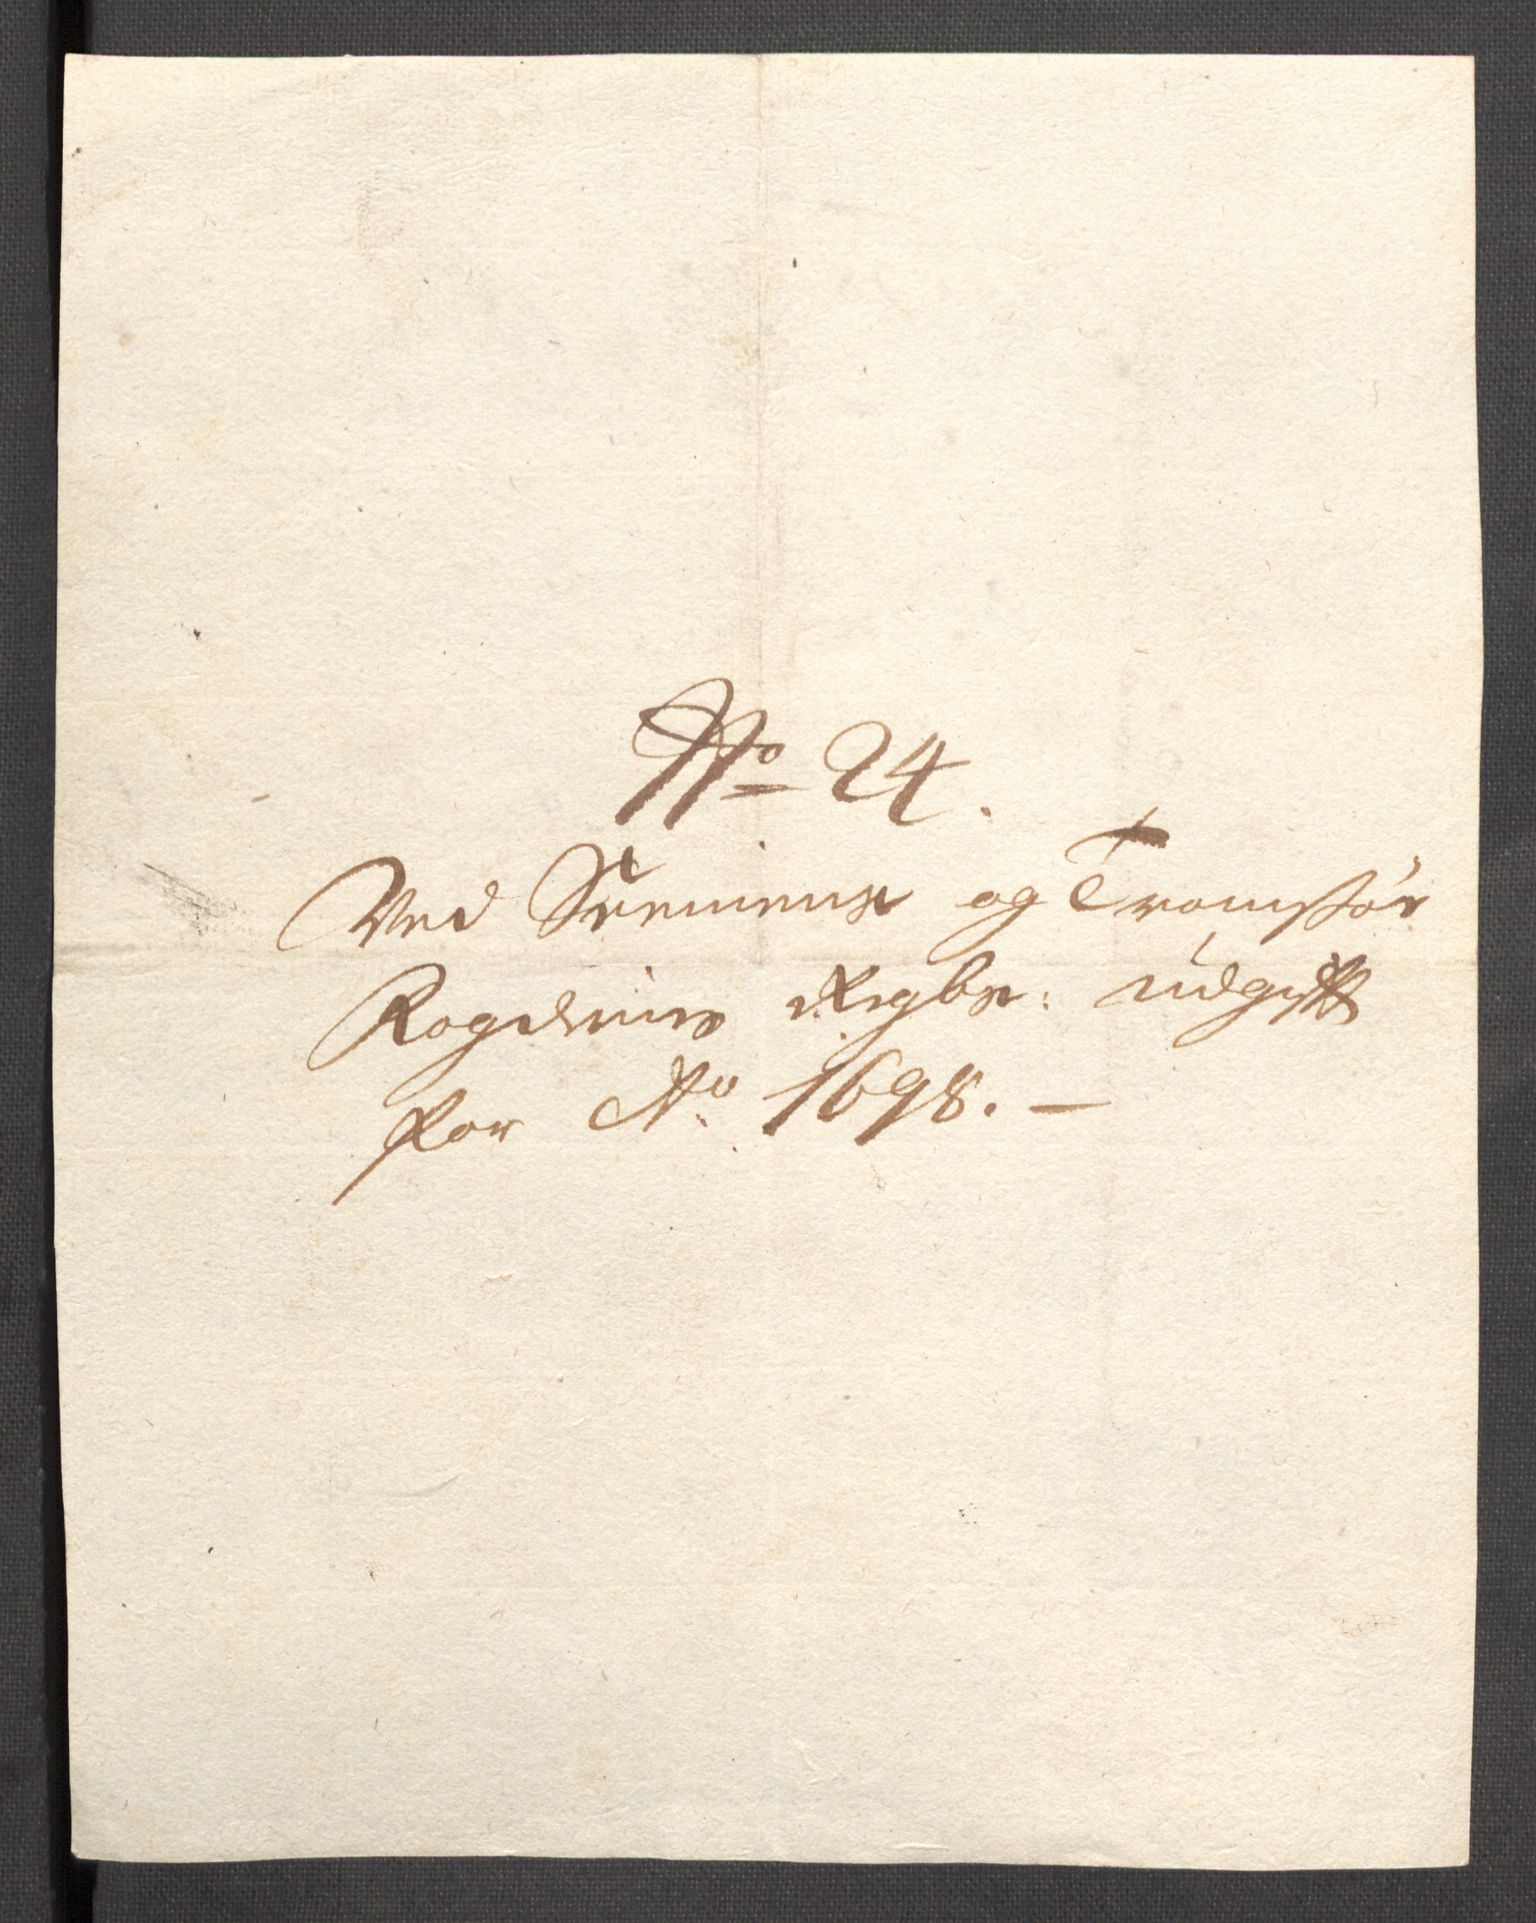 No 24.
Ved Senniens og Tromsøe
Fogderies Regbs: udgifft
for Ao 1698. —